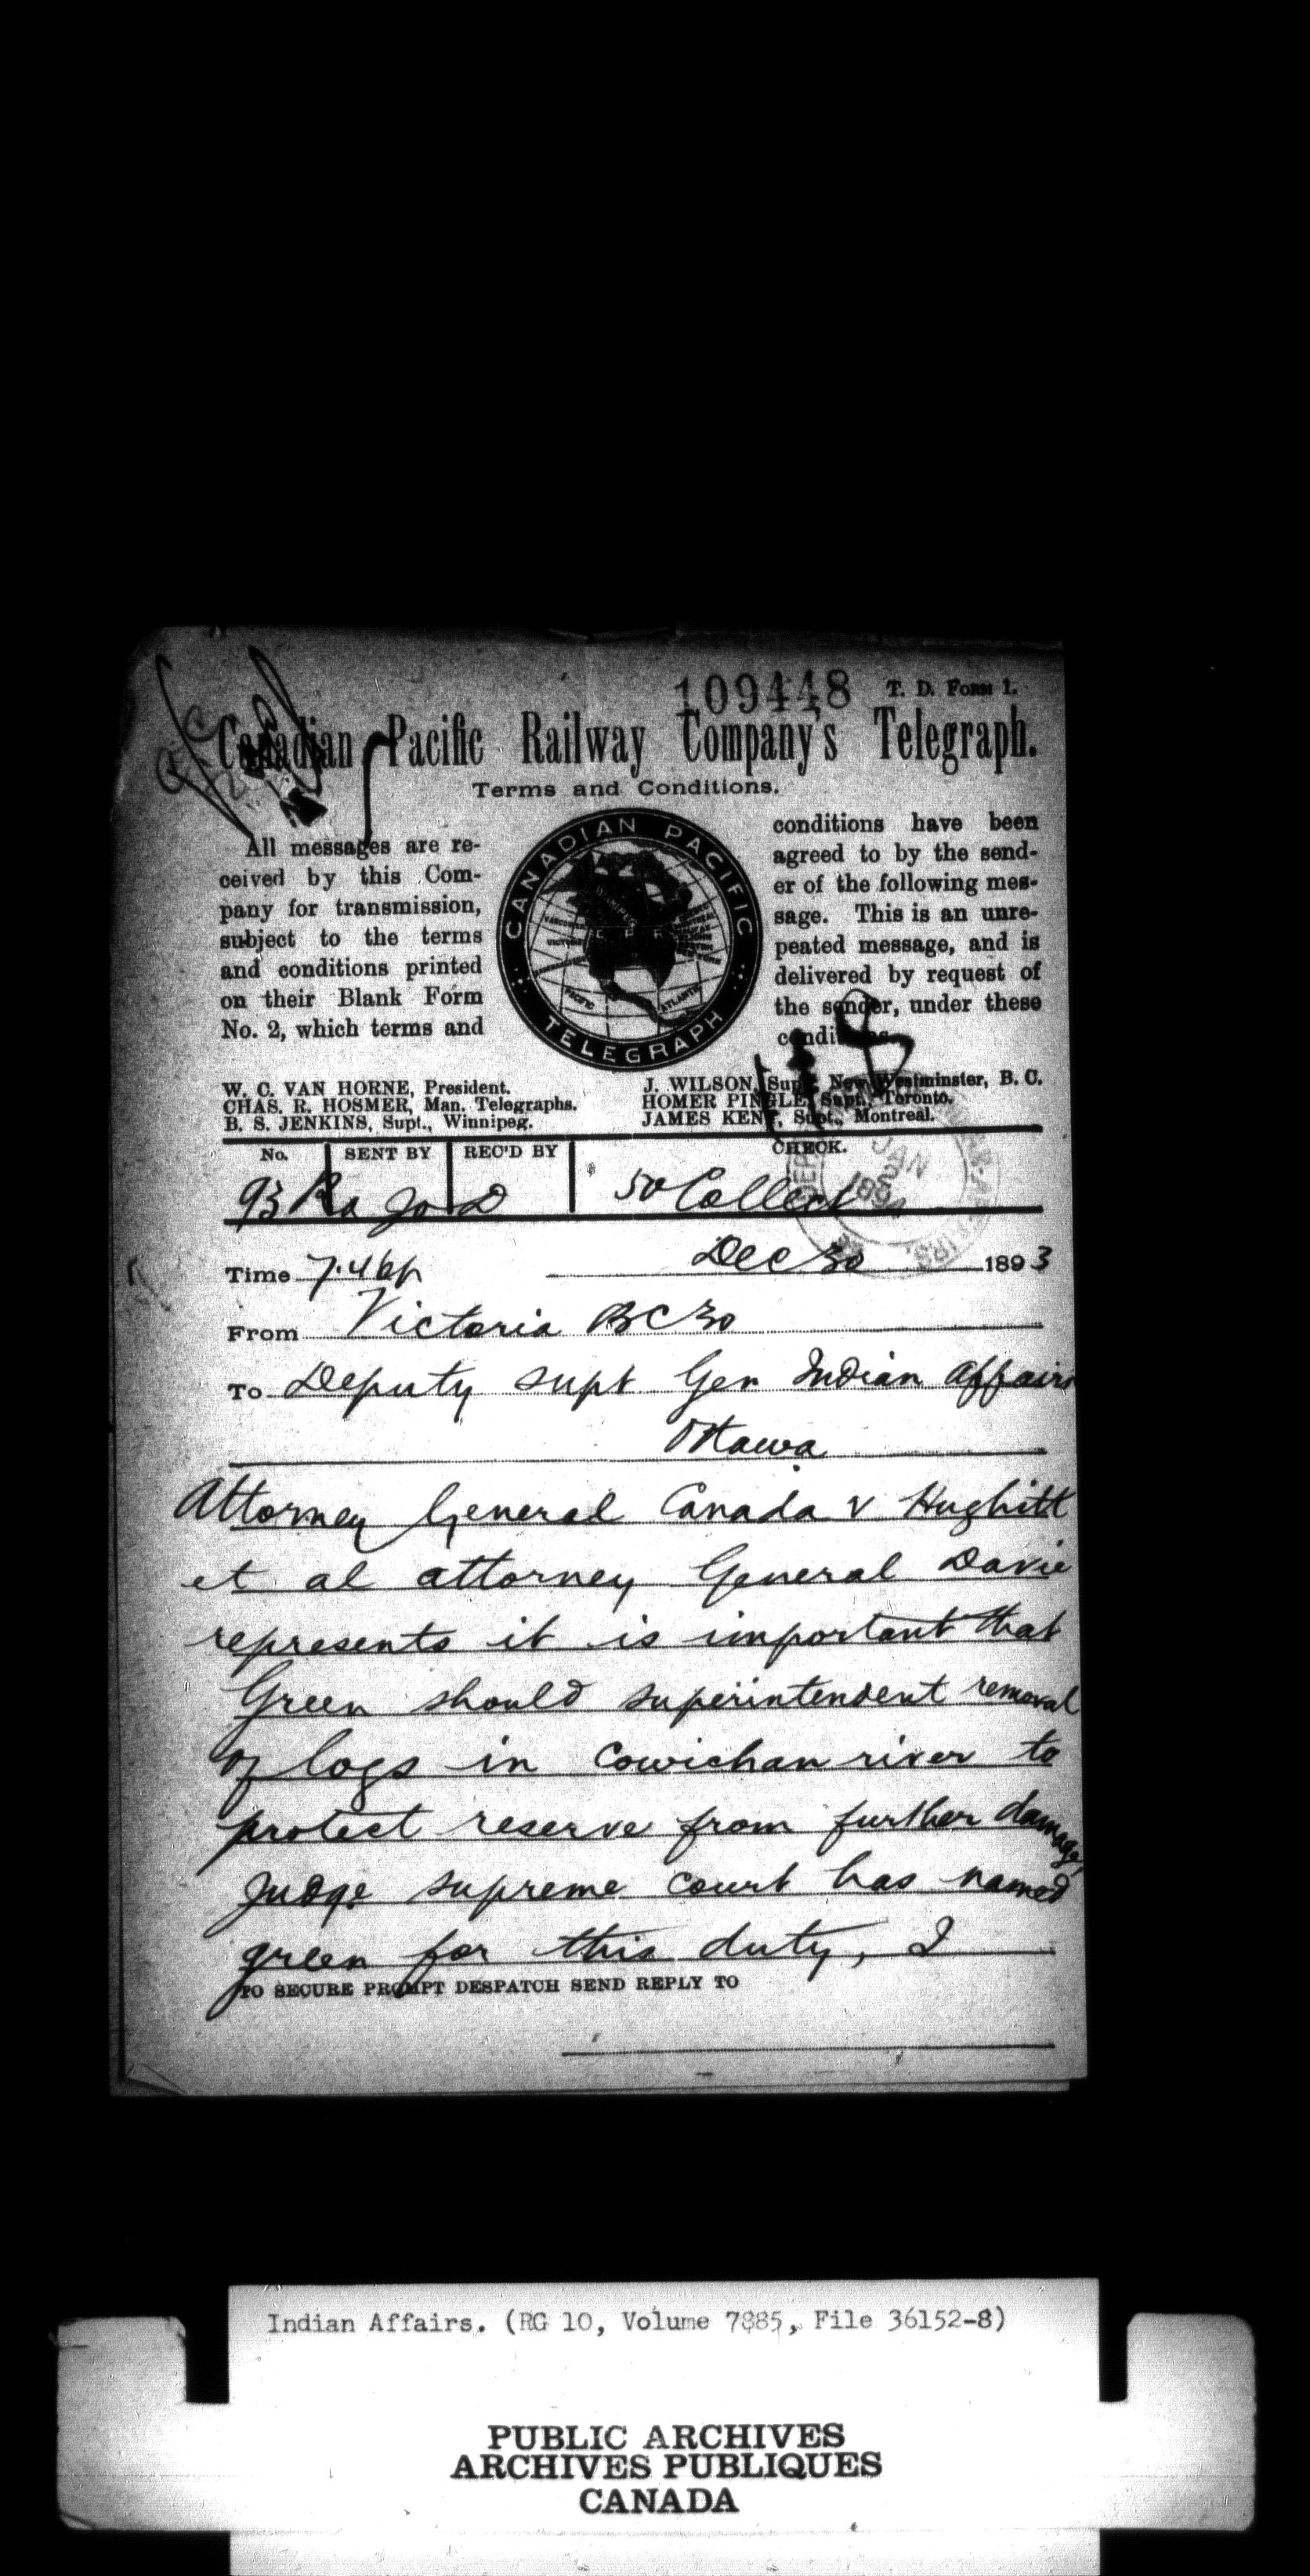 109448 T. D. FORM 1.
Canadian Pacific Railway Company's Telegraph.
Terms and Conditions.
All messages are re-
ceived by this Com-
pany for transmission,
subject to the terms
and conditions printed
on their Blank Form
No. 2, which terms and
CANADIAN PACIFIC
TELEGRAPH
PACIFIC
ATLANTIC
conditions have been
agreed to by the send-
er of the following mes-
sage. This is an unre-
peated message, and is
delivered by request of
the sender, under these
conditions.
W. C. VAN HORNE, President.
CHAS. R. HOSMER, Man. Telegraphs.
B. S. JENKINS, Supt., Winnipeg.
J. WILSON, Supt. New Westminster, B. C.
HOMER PINGLE, Supt., Toronto.
JAMES KENT, Supt., Montreal.
No. SENT BY REC'D BY CHECK.
93 Ra Jo D 50 Collect
JAN 2 1894
Time 7.46p Dec 30 1893
From Victoria BC 30
To Deputy supt Gen Indian Affairs
Ottawa
Attorney General Canada v Hughitt
et al attorney General Davie
represents it is important that
Green should superintendent removal
of logs in Cowichan river to
protect reserve from further damage,
Judge supreme court has named
green for this duty, I
TO SECURE PROMPT DESPATCH SEND REPLY TO
Indian Affairs. (RG 10, Volume 7885, File 36152-8)
PUBLIC ARCHIVES
ARCHIVES PUBLIQUES
CANADA